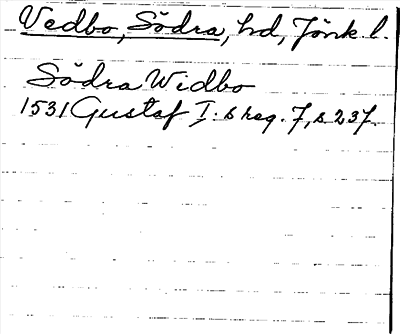 Vedbo, Södra, hd, Jönk l.
Södra Widbo
1531 Gustaf I:s reg. 7, s. 237.